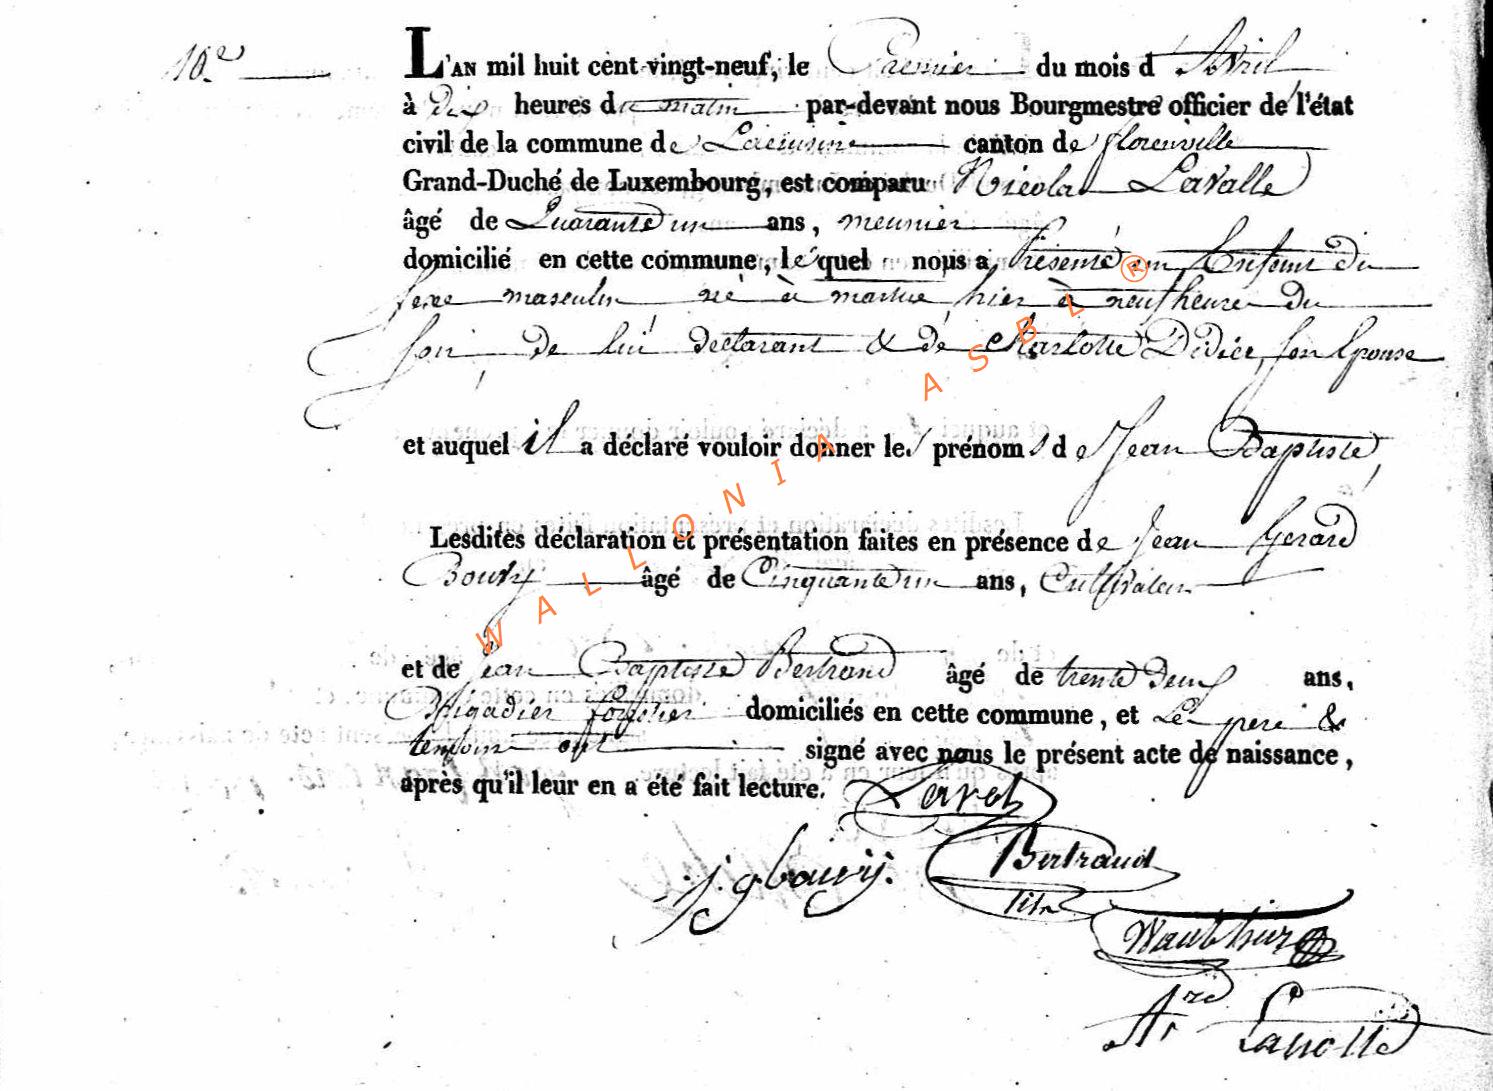 10e
L'AN mil huit cent vingt-neuf, le Premier du mois d'Avril
à dix heures du matin par-devant nous Bourgmestre officier de l'état
civil de la commune de Lacuisine canton de florenville
Grand-Duché de Luxembourg, est comparu Nicolas Lavalle
âgé de Quarante un ans, meunier
domicilié en cette commune, lequel nous a présenté un Enfant du
sexe masculin né à martué hier à neuf heures du
soir de lui déclarant & de Charlotte Didier, son Epouse
et auquel il a déclaré vouloir donner les prénoms de Jean Baptiste,
Lesdites déclaration et présentation faites en présence de Jean Gerard
Bouvy âgé de Cinquante un ans, Cultivateur
et de Jean Baptiste Bertrand âgé de trente deux ans,
Brigadier forestier domiciliés en cette commune, et Le pere &
temoins ont signé avec nous le présent acte de naissance,
après qu'il leur en a été fait lecture.
j. g bouvij.
Bertrand
Wauthier
Ard Lavallé
WALLONIA ASBL ®